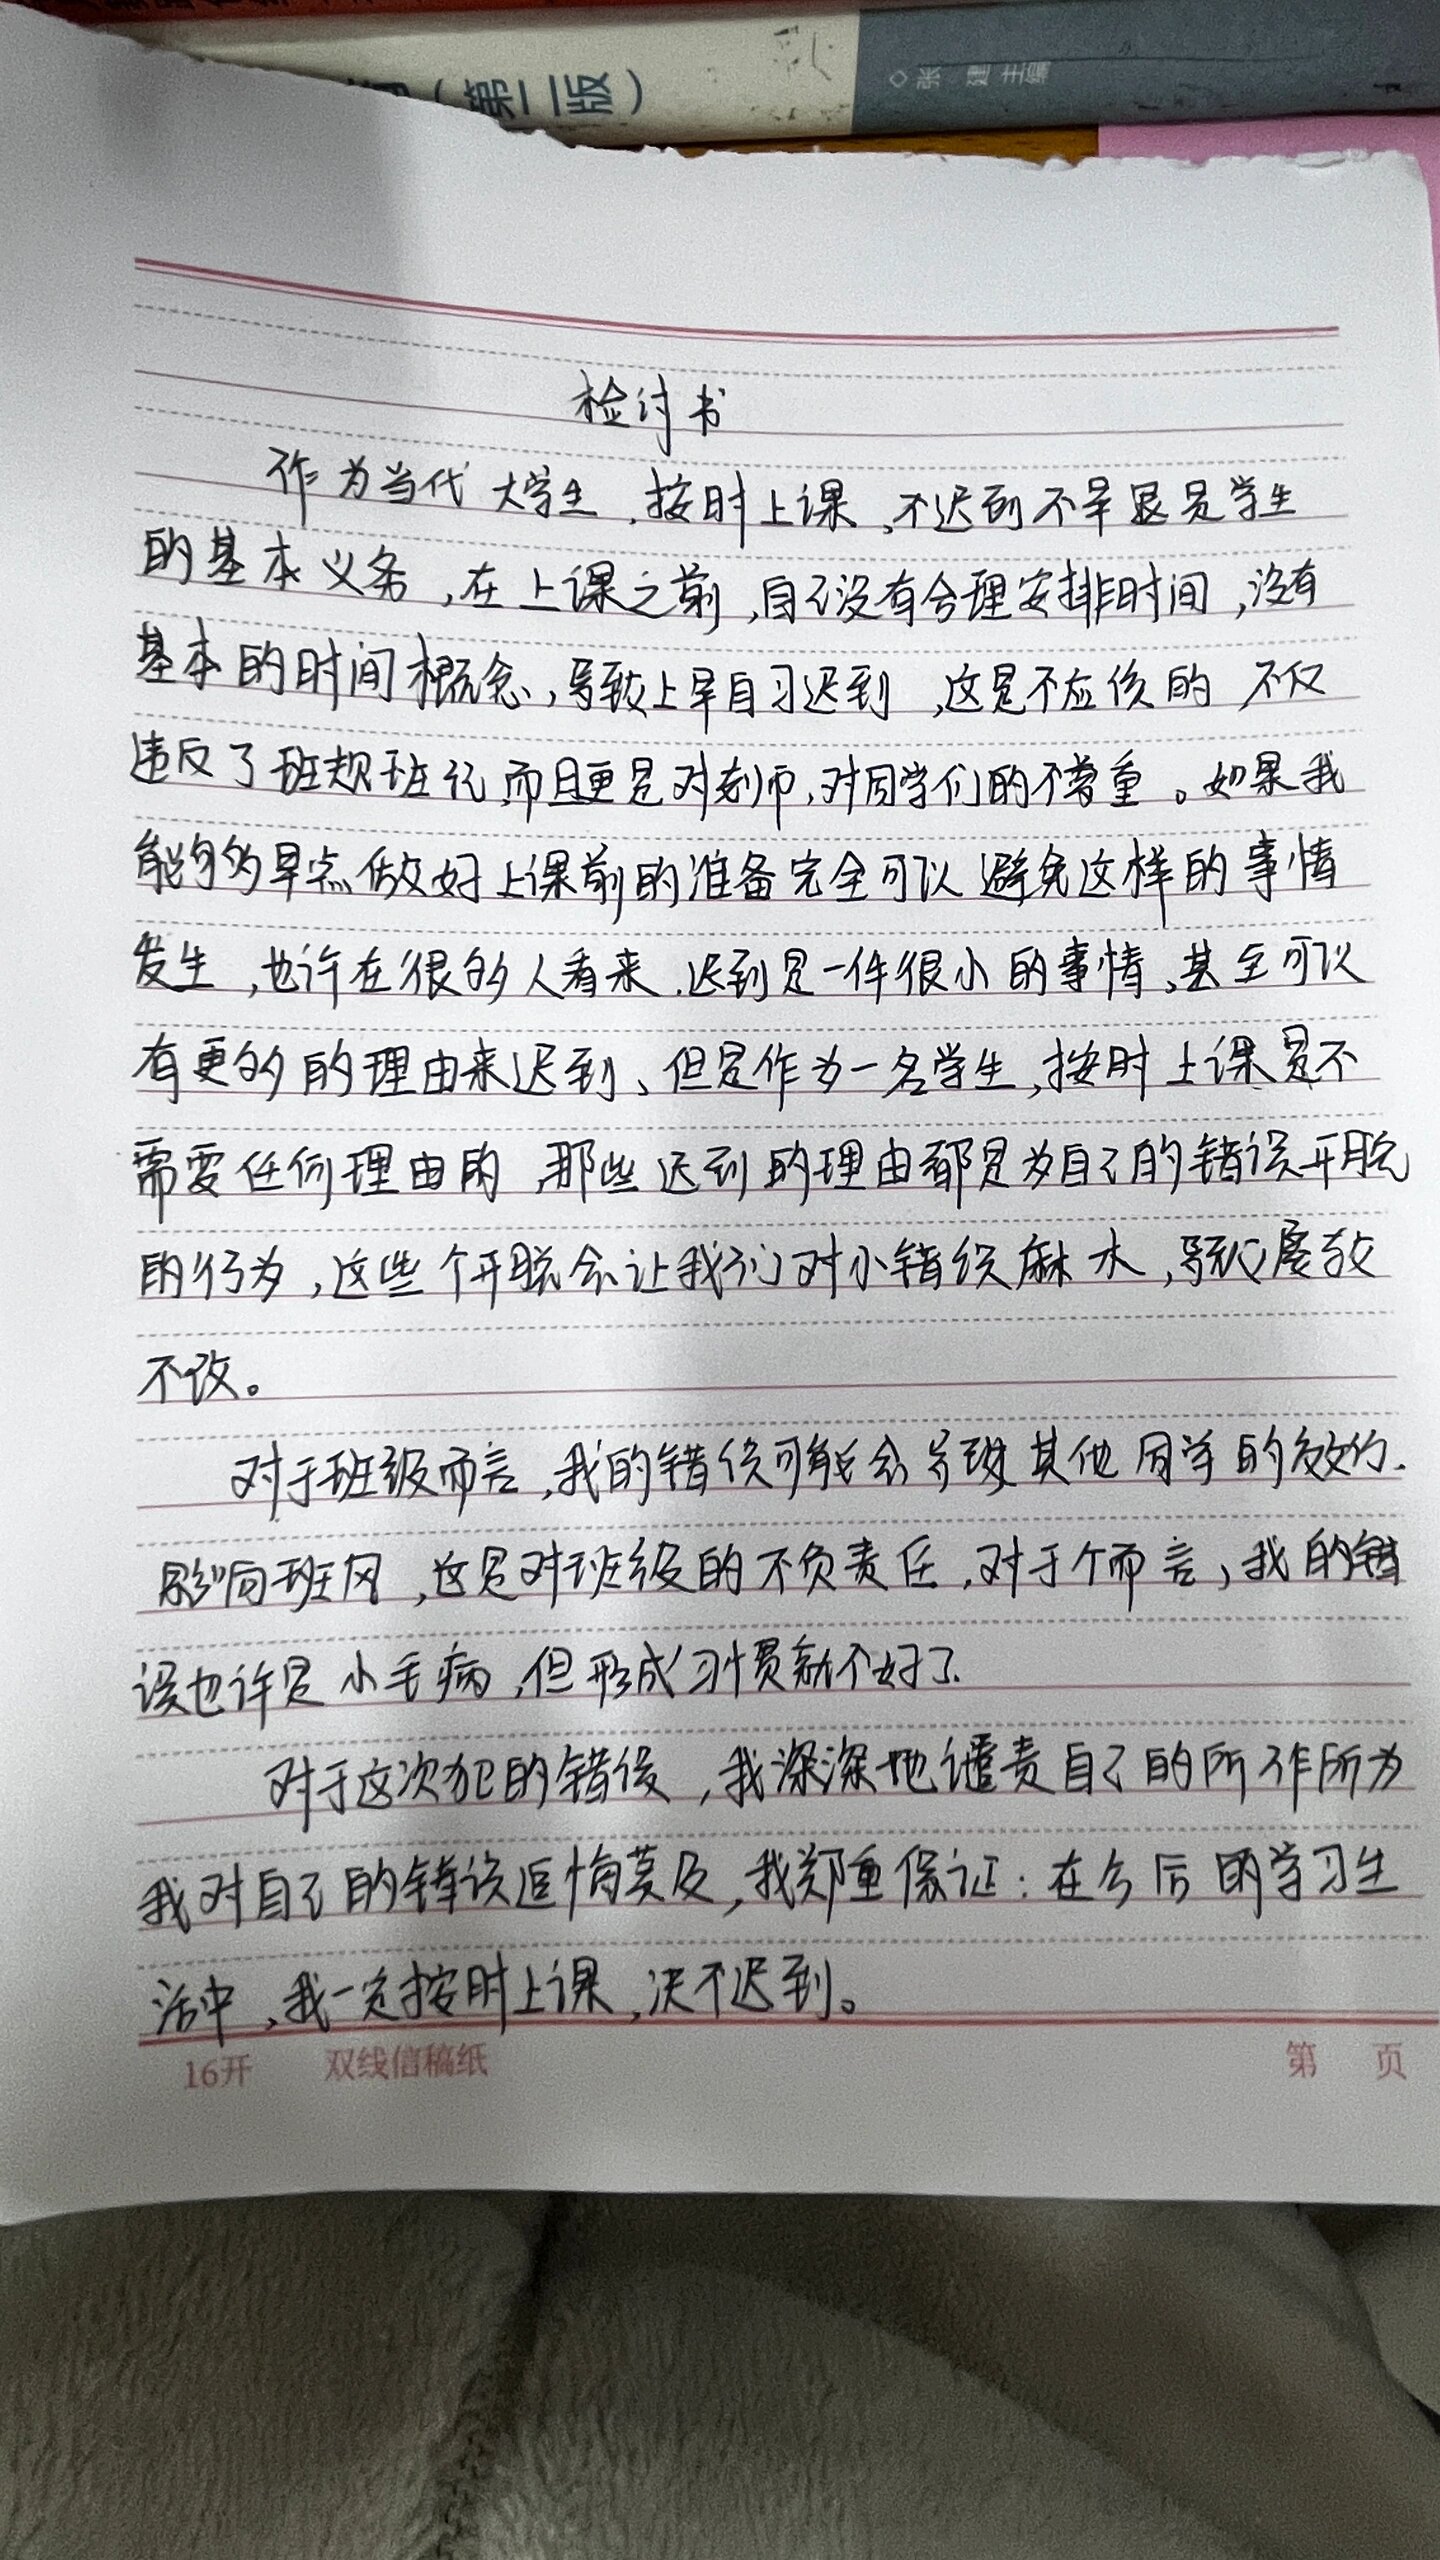 （第二版）
◇张 建 主编
检讨书
作为当代大学生，按时上课，不迟到不早退是学生
的基本义务，在上课之前，自己没有合理安排时间，没有
基本的时间概念，导致上早自习迟到，这是不应该的，不仅
违反了班规班纪，而且更是对老师，对同学们的不尊重。如果我
能够早点做好上课前的准备完全可以避免这样的事情
发生，也许在很多人看来，迟到是一件很小的事情，甚至可以
有更多的理由来迟到、但是作为一名学生，按时上课是不
需要任何理由的，那些迟到的理由都是为自己的错误开脱
的行为，这些个开脱会让我们对小错误麻木，导致屡教
不改。
对于班级而言，我的错误可能会导致其他同学的效仿.
影响班风，这是对班级的不负责任，对于个而言，我的错
误也许是小毛病，但形成习惯就不好了.
对于这次犯的错误，我深深地谴责自己的所作所为
我对自己的错误追悔莫及，我郑重保证：在今后的学习生
活中，我一定按时上课，决不迟到。
16开 双线信稿纸 第 页